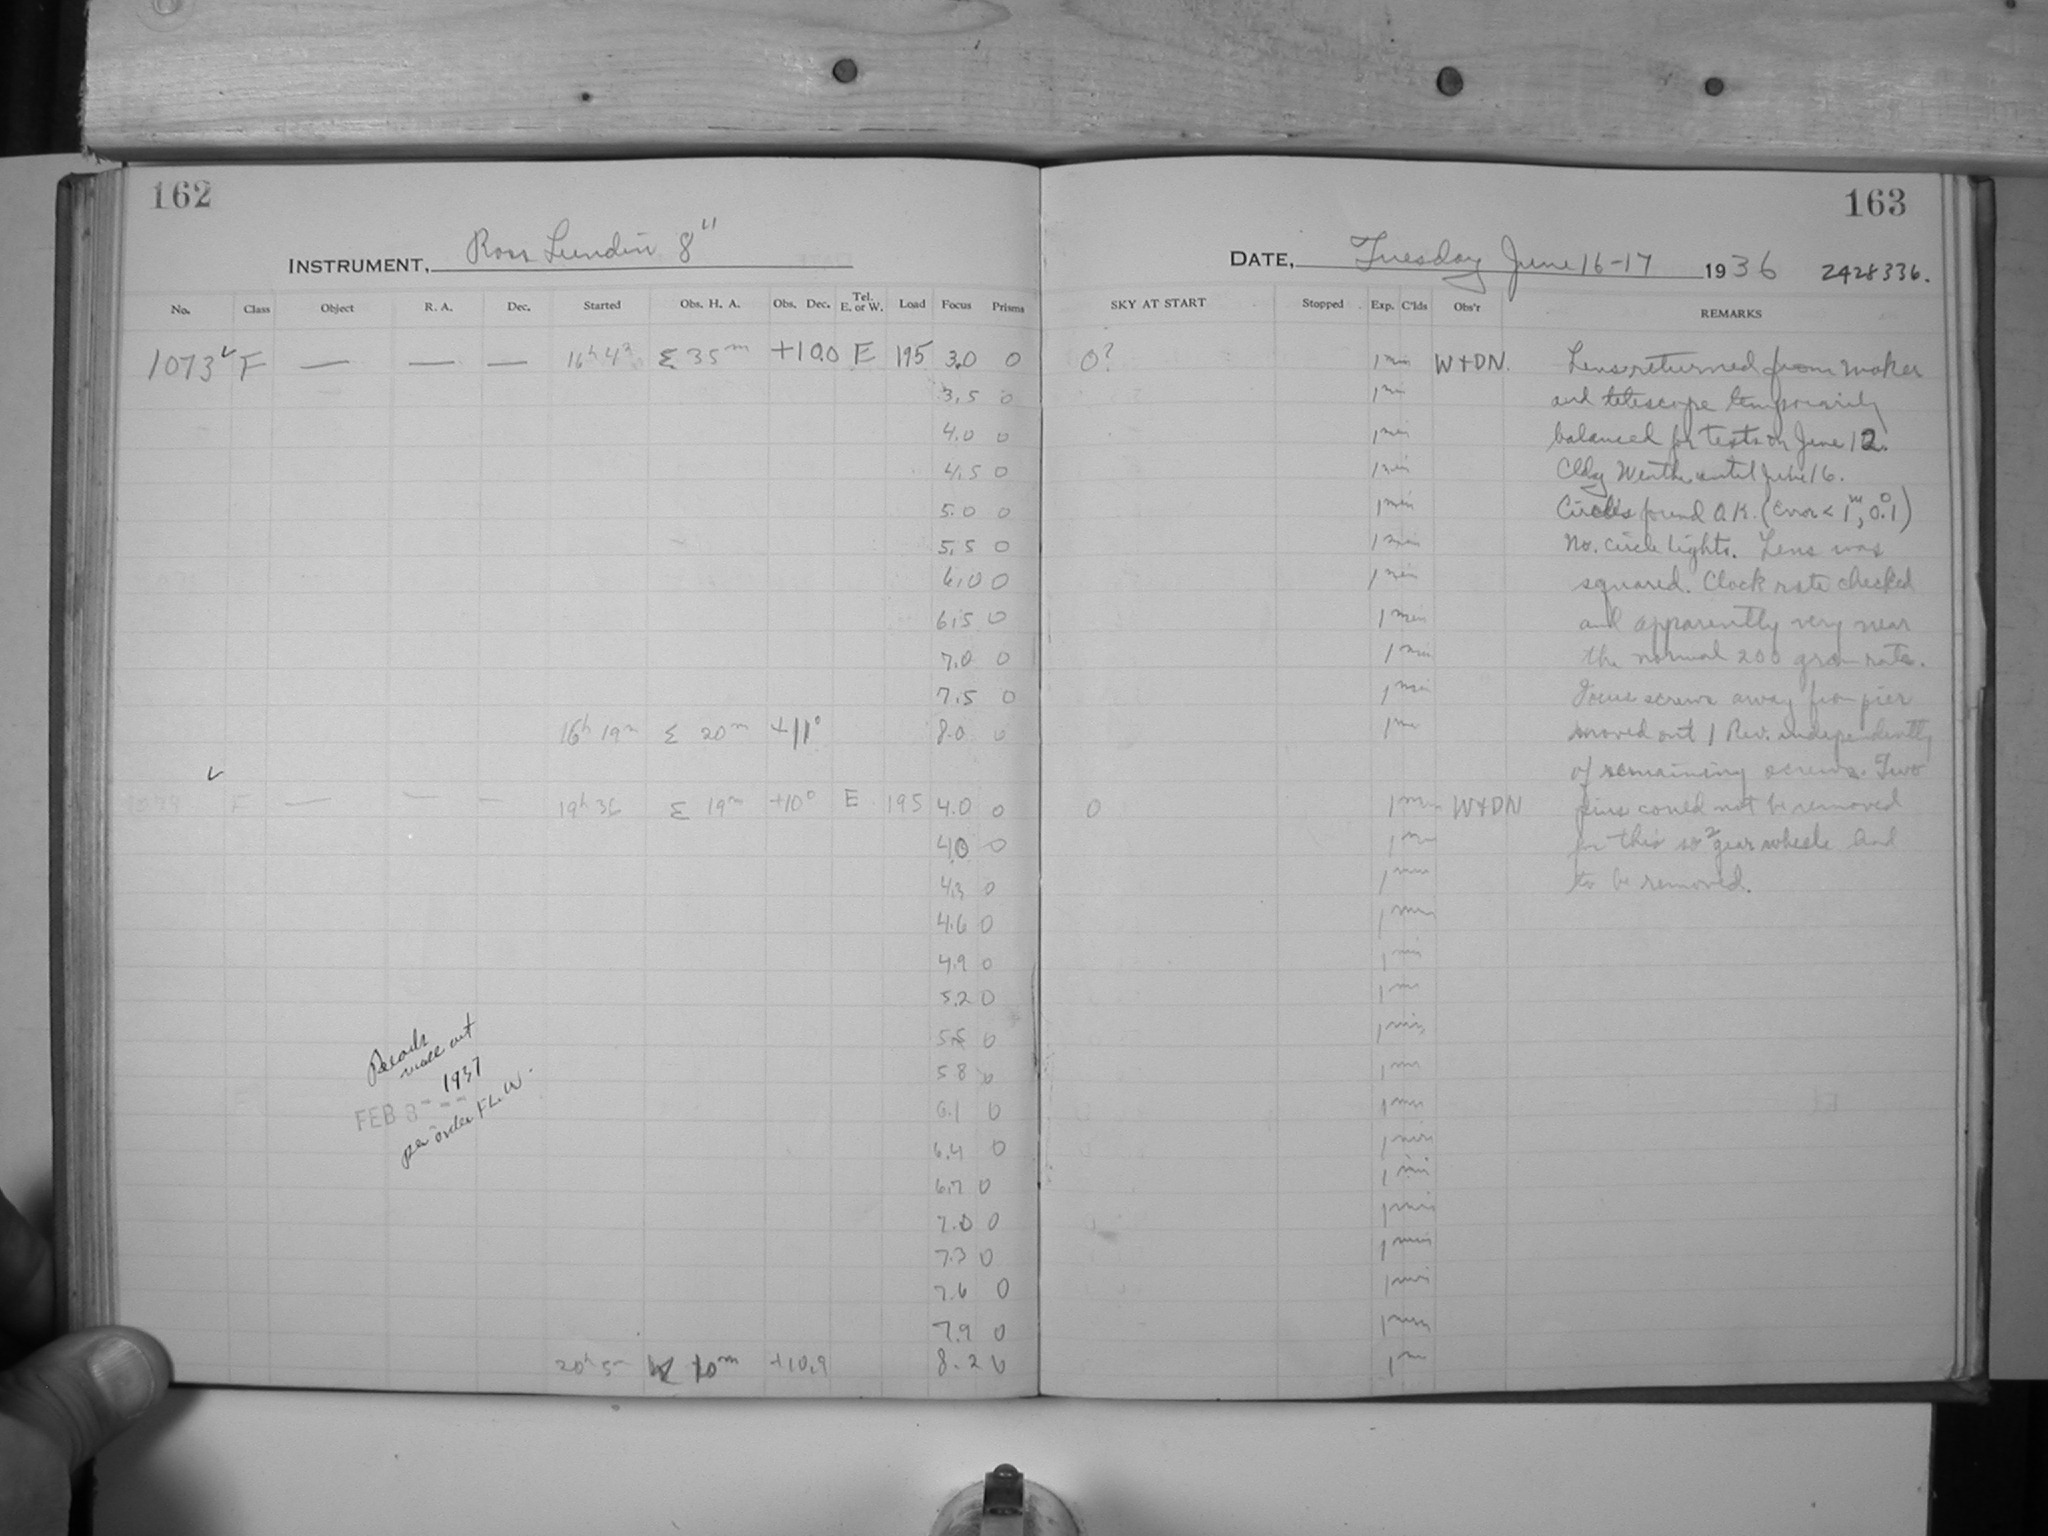 162
INSTRUMENT, Ross Lundin 8"
No. Class Object R. A. Dec. Started Obs. H. A. Obs. Dec. Tel. E. or W. Load Focus Prisms
1073 F — — — 16h 4 E 35m +10.0 E 195 3.0 0
3.5 0
4.0 0
4.5 0
5.0 0
5.5 0
6.0 0
6.5 0
7.0 0
7.5 0
16h 19m E 20m +11° 8.0 0
F — — — 19h 36 E 19m +10° E 195 4.0 0
4.0 0
4.3 0
4.6 0
4.9 0
5.2 0
5.5 0
5.8 0
6.1 0
6.4 0
6.7 0
7.0 0
7.3 0
7.6 0
7.9 0
20h 5m W 10m +10.9 8.2 0
Records
made out
1937
FEB 8
per order F.L.W.
163
DATE, Tuesday June 16-17 1936 2428336.
SKY AT START Stopped Exp. C'lds Obs'r REMARKS
0? 1 min W+DN. Lens returned from maker
1 min and telescope temporarily
1 min balanced for tests on June 12.
1 min Cldy Weather until June 16.
1 min Circles found O.K. (Error < 1m, 0°.1)
1 min No. circle lights. Lens was
1 min squared. Clock rate checked
1 min and apparently very near
1 min the normal 200 gram rate.
1 min Focus screws away from pier
1 min moved out 1 Rev. independently
of remaining screws. Two
0 1 min W+DN pins could not be removed
1 min for this so 2 gear wheels had
1 min to be removed.
1 min
1 min
1 min
1 min
1 min
1 min
1 min
1 min
1 min
1 min
1 min
1 min
1 m